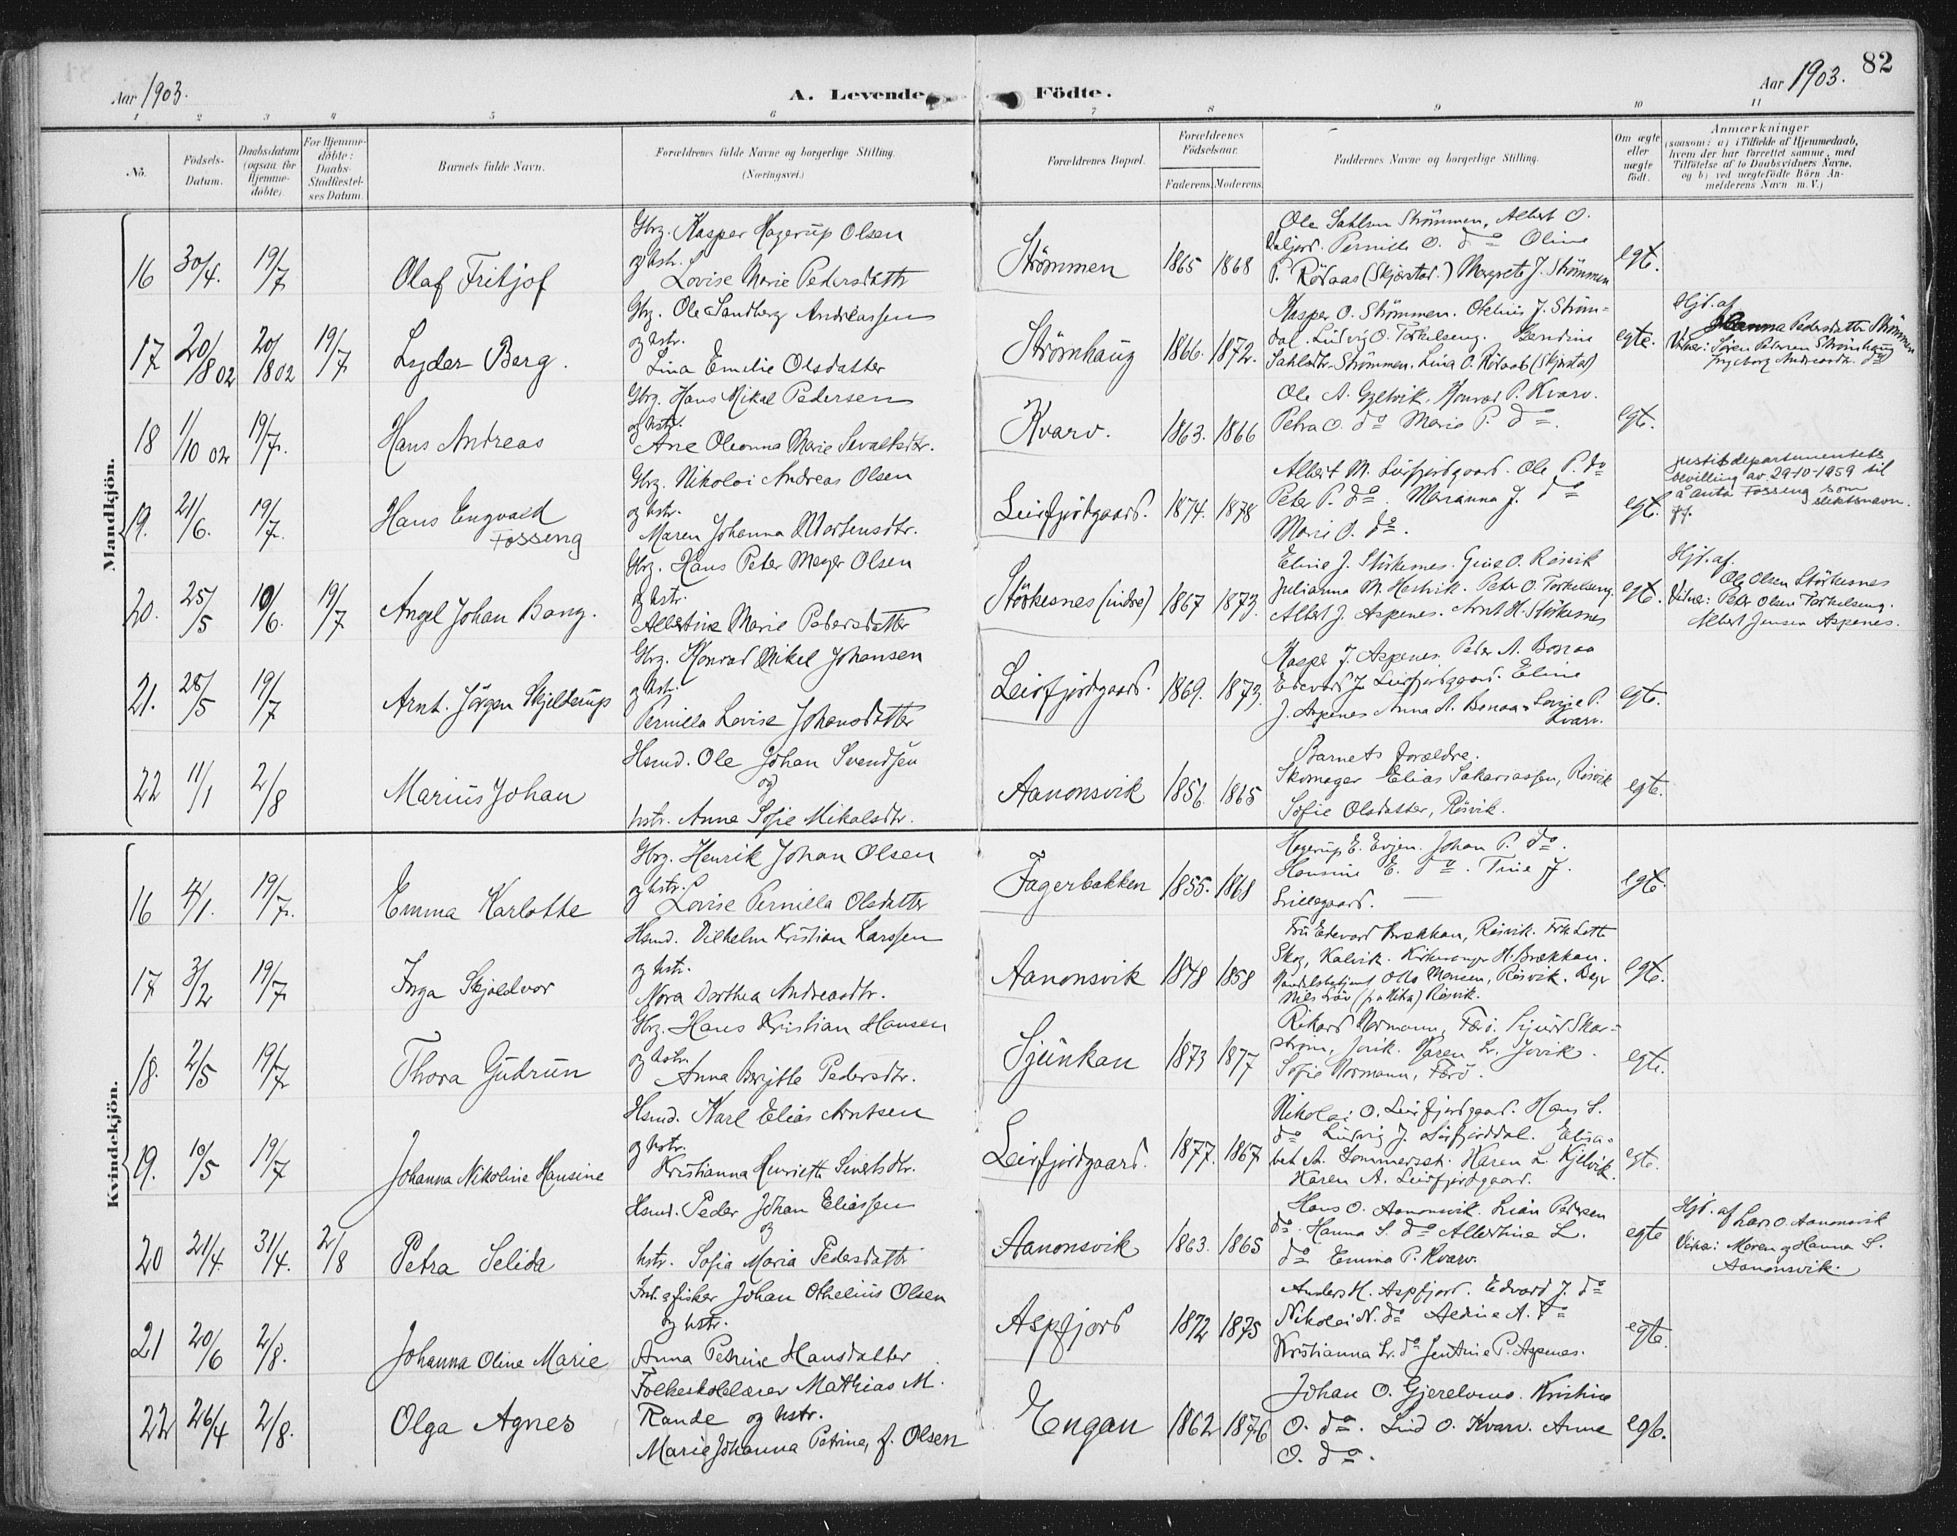 82
Aar 1903.
A. Levende Födte.
Aar 1903.
1 2 3 4 5 6 7 8 9 10 11
No.
Födsels-
Datum.
Daabsdatum
(ogsaa for
Hjemme-
döbte).
For Hjemme-
döbte:
Daabs-
Stadfæstel-
ses Datum.
Barnets fulde Navn.
Forældrenes fulde Navne og borgerlige Stilling.
(Næringsvei.)
Forældrenes Bopæl.
Forældrenes
Födselsaar.
Faderens. Moderens.
Faddernes Navne og borgerlige Stilling.
Om ægte
eller
uægte
födt.
Anmærkninger
(saasom: a) i Tilfælde af Hjemmedaab,
hvem der har forrettet samme, med
Tilföielse af to Daabsvidners Navne,
og b) ved uægtefödte Börn An-
melderens Navn m. V.)
Mandkjön.
16 30/4. 19/7 Olaf Fritjof
Gbrg. Kasper Hagerup Olsen
og hstr.
Lovise Marie Pedersdatter
Strömmen 1865 1868
Strömmen, Albert O.
Pernille O. do Oline
P. Rödaas (Skjerstad.) Margrete J. Strömmen
egte.
17 20/8 02 20/8 02 19/7 Lyder Berg.
Gbrg. Ole Sandberg Andreassen
og hstr.
Lina Emilie Olsdatter
Strömhaug 1866. 1872.
Kasper O. Strömmen. Othelius J. Ström-
dal. Ludvig O. Torkelseng.
Strömmen. Lina O. Rödaas (Skjerstad)
egte.
Hjd. af
Johanna Pedersdatter Strömmen
Vidner: Sören Petersen Strömhaug
Ingeborg Andreasdtr. do
18 1/10 02 19/7. Hans Andreas
Gbrg. Hans Mikal Pedersen
og hstr.
Ane Oleanna Marie Sevaldsdtr.
Kvarv. 1863. 1866
Ole A. Gjelvik. Konrad P. Kvarv.
Petra O. do Marie P. do.
egte.
19. 21/6. 19/7. Hans Engvald
Fosseng
Gbrg. Nikolai Andreas Olsen
og hstr.
Maren Johanna Mortensdtr.
Leirfjordgaard. 1874. 1878
Albert M. Leirfjordgaard. Ole P. do
Peter P. do. Marianna J. do
Marie O. do.
egte.
justisdepartementets
bevilling av 29-10-1959 til
å anta Fosseng som
slektsnavn.
20. 25/5 10/6. 19/7 Angel Johan Bang.
Gbrg. Hans Peter Meyer Olsen
og hstr.
Albertine Marie Pedersdatter
Störkesnes (indre) 1867 1873.
Eline J. Störkesnes. Gina O. Rösvik
Julianna M. Hestvik. Peter O. Torkelseng.
Albert J. Aspenes. Arnt H. Störkesnes
egte.
Hjd. af.
Ole Olsen Störkesnes
Vidner: Peter Olsen Torkelseng.
Albert Jensen Aspenes.
21. 28/5 19/7 Arnt. Jörgen Skjelderup
Gbrg. Konrad Mikel Johansen
og hstr.
Pernilla Lovise Johansdatter
Leirfjordgaard. 1869. 1873.
Kasper J. Aspenes. Peder A. Bonaa
Edevard J. Leirfjordgaard. Eline
J. Aspenes Anna A. Bonaa. Lovise P.
Kvarv.
egte.
22 11/1 2/8 Marius Johan
Hsmd. Ole Johan Svendsen
og
hstr. Anne Sofie Mikalsdtr.
Aanonsvik 1856. 1865
Barnets forældre.
Skomager Elias Sakariassen, Rösvik
Sofie Olsdatter, Rösvik.
egte.
Kvindekjön.
16 4/1. 19/7. Emma Karlotte
Gbrg. Henrik Johan Olsen
og hstr.
Lovise Pernilla Olsdatter
Fagerbakken 1855. 1868
Hagerup E. Evjen. Johan P. do.
Hansine E. do. Tine J.
Lillegaard.
egte.
17 3/2 19/7 Inga Skjoldvor
Hsmd. Vilhelm Kristian Larssen
og hstr.
Nora Dorthea Andreasdtr.
Aanonsvik 1848 1858
Fru Edevard Brækkan, Rösvik. Frk Lotte
Skog, Kalvik. Kirkesanger H. Brækkan.
Handelsbetjent Otto Monsen, Rösvik.
Rösvik.
egte.
18. 2/5 19/7 Thora Gudrun
Gbrg. Hans Kristian Hansen
og hstr.
Anna Bergitte Pedersdtr.
Sjunkan 1873 1877
Rikard Normann, Færö. Sigurd Skar-
ström, Jovik. Karen Jovik.
Sofie Normann, Færö.
egte.
19. 10/5 19/7 Johanna Nikoline Hansine
Hsmd. Karl Elias Arntsen
og hstr.
Kristianna Henriette Sivertsdtr.
Leirfjordgaard. 1877. 1867
Nikolai O. Leirfjordgaard. Hans S.
do Ludvig J. Leirfjorddal. Elisa-
bet A. Sommerset. Karen L. Kjelvik.
Karen A. Leirfjordgaard.
egte.
20 21/4. 31/4. 2/8 Petra Selida
Hsmd. Peder Johan Eliassen
og
hstr. Sofia Maria Pedersdatter
Aanonsvik 1863. 1865
Hans O. Aanonsvik. Lian Pedersen
do. Hanna S. do Albertine L.
do Emma P. Kvarv.
egte
Hjd. af Lars O. Aanonsvik
Vidner: Maren og Hanna S.
Aanonsvik.
21 20/6 2/8. Johanna Oline Marie
Ind. & fisker Johan Othelius Olsen
og hstr.
Anna Petrine Hansdatter
Aspfjord 1872 1875
Anders H. Aspfjord. Edvard J. do
Nikolai N. do Aldine A. do
Kristianna Lr. do Jentine P. Aspenes.
egte
22 26/4 2/8. Olga Agnes
Folkeskolelærer Mathias M.
Rande og hstr.
Marie Johanna Petrine, f. Olsen
Engan 1862 1876
Johan O. Gjerelvmo. Kristine
O. do. Lind O. Kvarv. Anne
O. do.
egte.